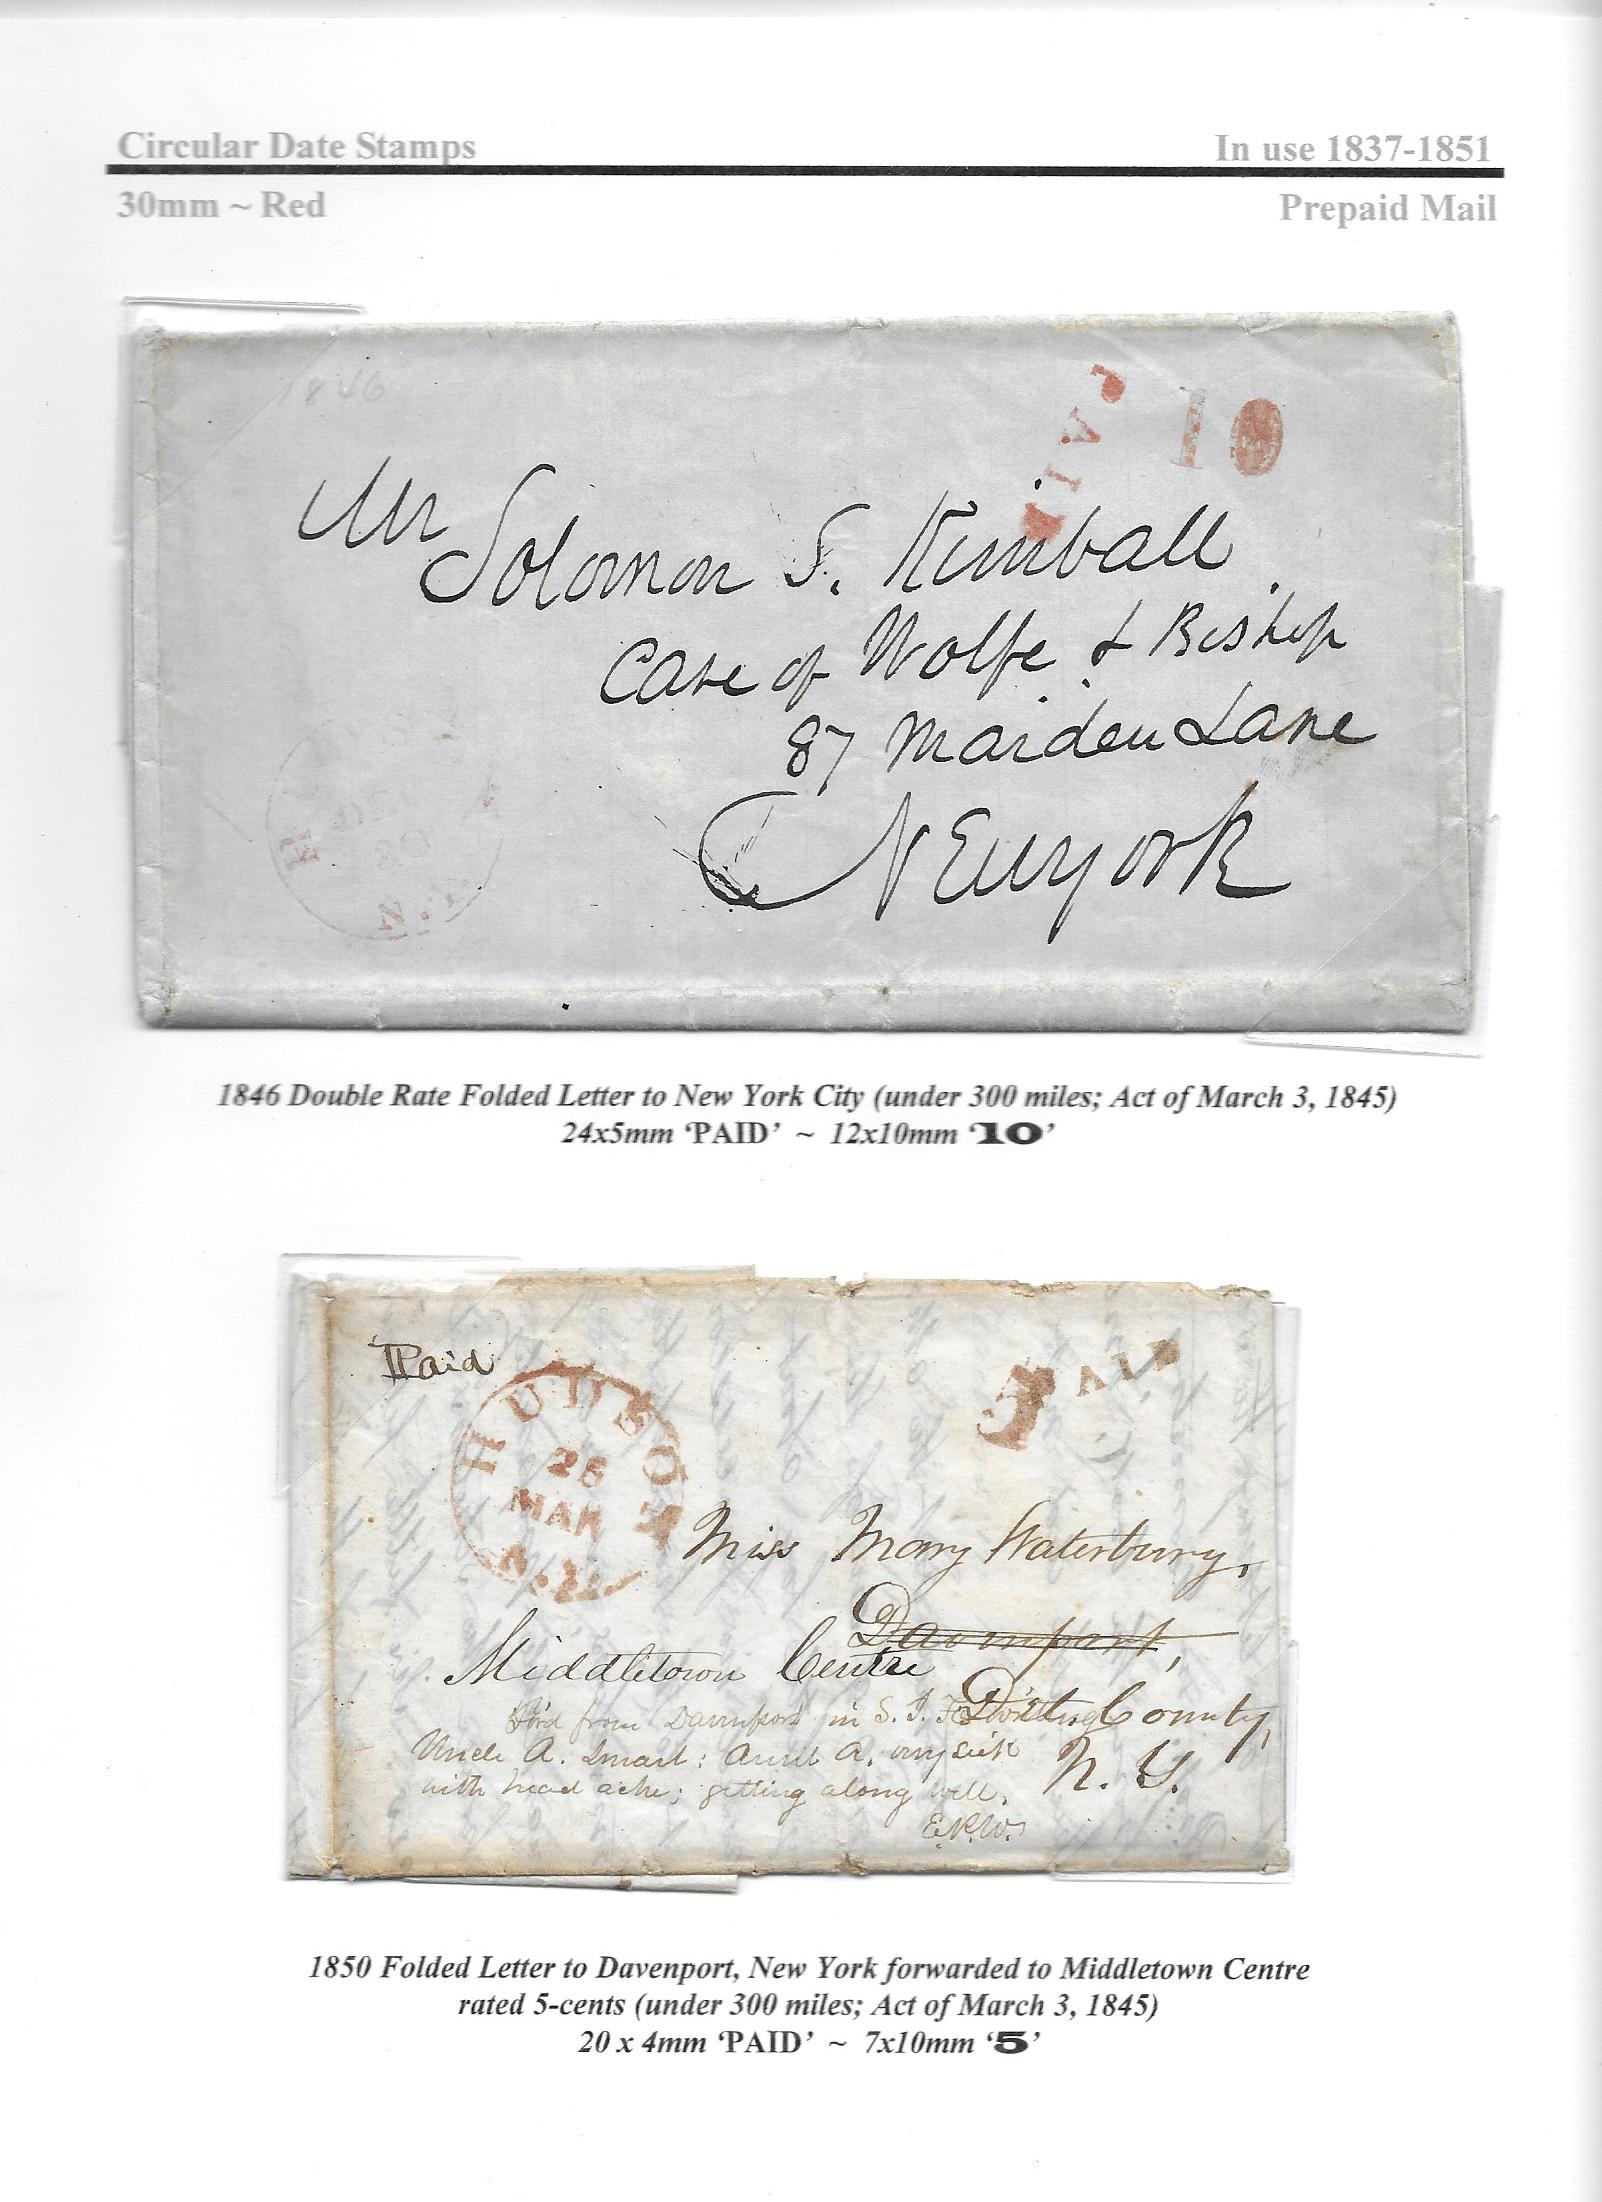 Circular Date Stamps
In use 1837-1851
30mm ~ Red
Prepaid Mail
1846
PAID
10
Mr
Solomon S. Kimball
Care of Wolfe & Bishop
87 Maiden Lane
New york
H
20
N.Y.
1846 Double Rate Folded Letter to New York City (under 300 miles; Act of March 3, 1845)
24x5mm ‘PAID’ ~ 12x10mm ‘10’
Paid
HUDSON
26
MAR
N.Y.
5
PAID
Miss Mary Waterbury,
Davenport,
Middletown Centre
County,
from Davenport in S. I.
Uncle A. Smart; Aunt A. very sick
with head ache; getting along well.
N. Y.
E.R.W.
1850 Folded Letter to Davenport, New York forwarded to Middletown Centre
rated 5-cents (under 300 miles; Act of March 3, 1845)
20 x 4mm ‘PAID’ ~ 7x10mm ‘5’